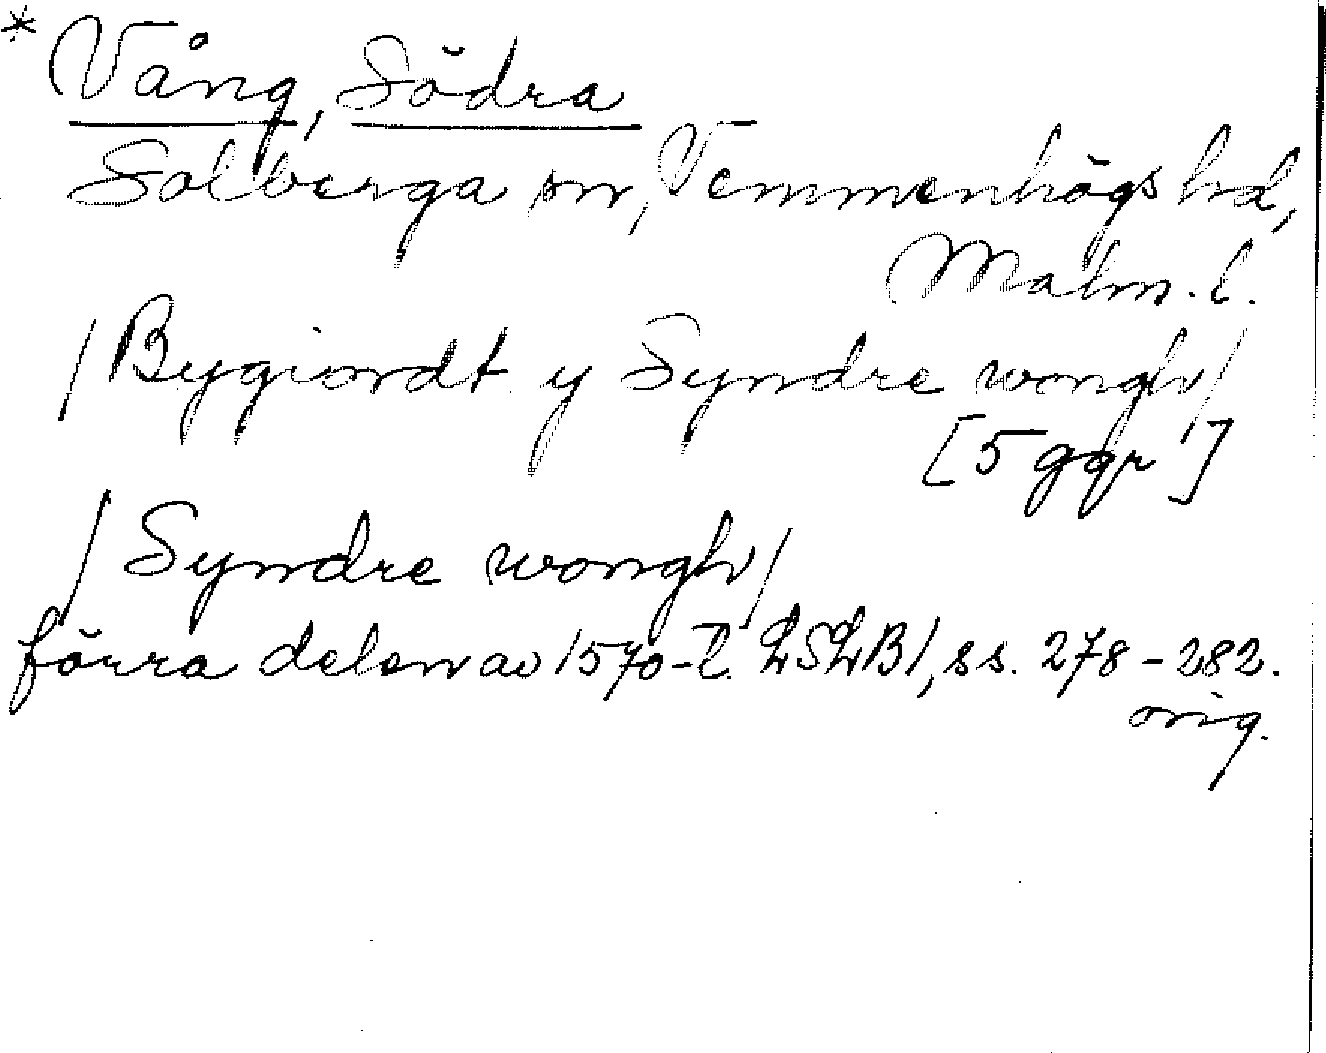 *Vång, Södra
Solberga sn, Vemmenhögs hd,
Malm. l.
/Bygiordt y Syndre wongh/
[5 ggr]
/Syndre wongh/
förra delen av 1570-t. LSLB1, ss. 278-282.
orig.